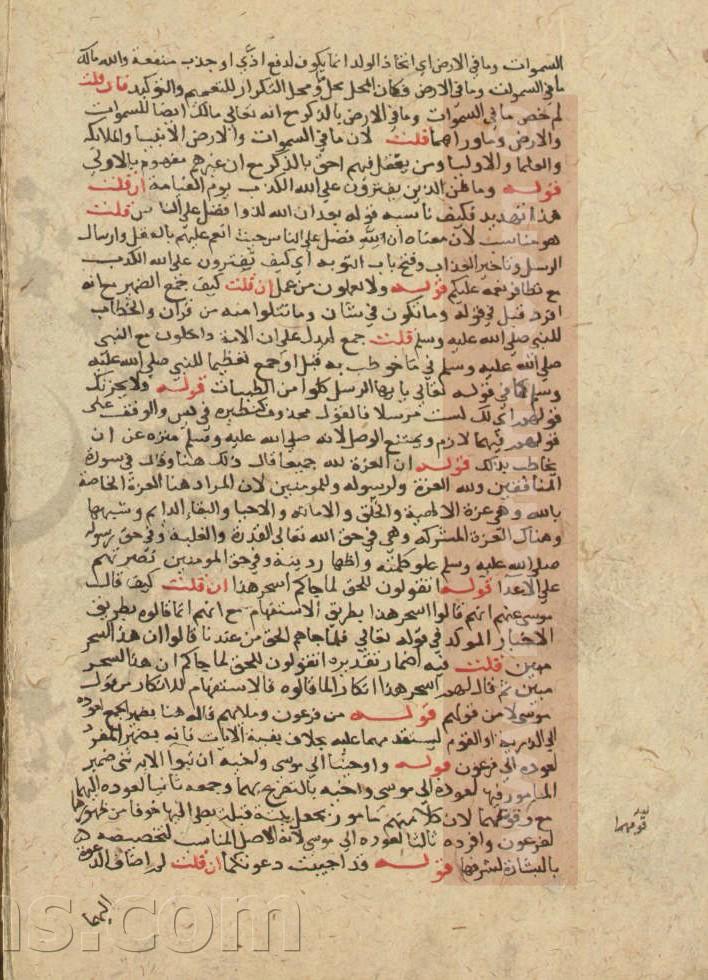 السموات وما في الارض اي اتخاذ الولد انما يكون لدفع اذي او جذب منفعة والله مالك
ما في السموات وما في الارض فكان المحل محل ومحل التكرار للتعميم والتوكيد فان قلت
لم خص ما في السموات وما في الارض بالذكر مع انه تعالي مالك ايضا للسموات
والارض وما وراهما قلت لان ما في السموات والارض الانبيا والملائكه
والعلما والاوليا ومن يعقل فيهم احق بالذكر مع ان غيرهم مفهوم بالاولي
قوله وما ظن الذين يفترون علي الله الكذب يوم القيامة ان قلت
هذا تهديد فكيف ناسبه قوله بعد ان الله لذوا فضل علي الناس قلت
هو مناسب لان معناه ان الله لذو فضل علي الناس حيث انعم عليهم بالعقل وارسال
الرسل وتاخير العذاب وفتح باب التوبه اي كيف تفترون علي الله الكذب
مع تظافر نعمه عليكم قوله ولا تعملون من عمل ان قلت كيف جمع الضمير مع انه
افرد قبل في قوله وما تكون في شان وما تتلوا منه من قران والخطاب
للنبي صلي الله عليه وسلم قلت جمع ليدل علي ان الامة داخلون مع النبي
صلي الله عليه وسلم في ما خوطب به قبل او جمع تعظيما للنبي صلي الله عليه
وسلم كما في قوله تعالي يا يها الرسل كلوا من الطيبات قوله ولا يحزنك
قولهم اي لك لست مرسلا فالقول محذوف كنظيره في يس والوقف علي
قولهم فيهما لازم ويمتنع الوصل لانه صلي الله عليه وسلم منزه عن ان
يخاطب بذلك قوله ان العزة لله جميعا قال ذلك هنا وقال في سورة
المنافقين ولله العزة ولرسوله وللمومنين لان المراد هنا العزة الخاصة
بالله وهي عزة الالهية والخلق والاماتة والاحيا والبقا الدايم وشبهها
وهناك العزة المشتركه وهي في حق الله تعالي القدرة والغلبة وفي حق رسوله
صلي الله عليه وسلم علو كلمته واظهار دينه وفي حق المومنين نصرتهم
علي الاعدا قوله اتقولون للحق لما جاكم اسحر هذا ان قلت كيف قال
موسي عنهم انهم قالوا اسحر هذا بطريق الاستفهام مع انهم انما قالوه بطريق
الاخبار الموكد في قوله تعالي فلما جاهم الحق من عندنا قالوا ان هذا لسحر
مبين قلت فيه اضمار تقديره اتقولون للحق لما جاكم ان هذا لسحر
مبين ثم قال لهم اسحر هذا انكارا لما قالوه فالاستفهام للانكار من قول
موسي لا من قولهم قوله من فرعون وملائهم قاله هنا بضمير الجمع لعوده
الي الذرية او القوم لتقدمهما عليه بخلاف بقية الايات فانه بضمير المفرد
لعوده الي فرعون قوله واوحينا الي موسي واخيه ان تبوا الاية ثني ضمير
المامور فيها لعوده الي موسي واخيه بالتصريح بهما وجمعه ثانيا لعوده اليهما
مع قومهما لان كلا منهم مامور بجعل بيته قبلة يصلي اليها خوفا من ظهورهم
لفرعون وافرده ثالثا لعوده الي موسي لانه الاصل المناسب لتخصيصه
بالبشارة لشرفها قوله قد اجيبت دعوتكما ان قلت لم اضاف الدعوة
قومهما
اليهما
ns.com